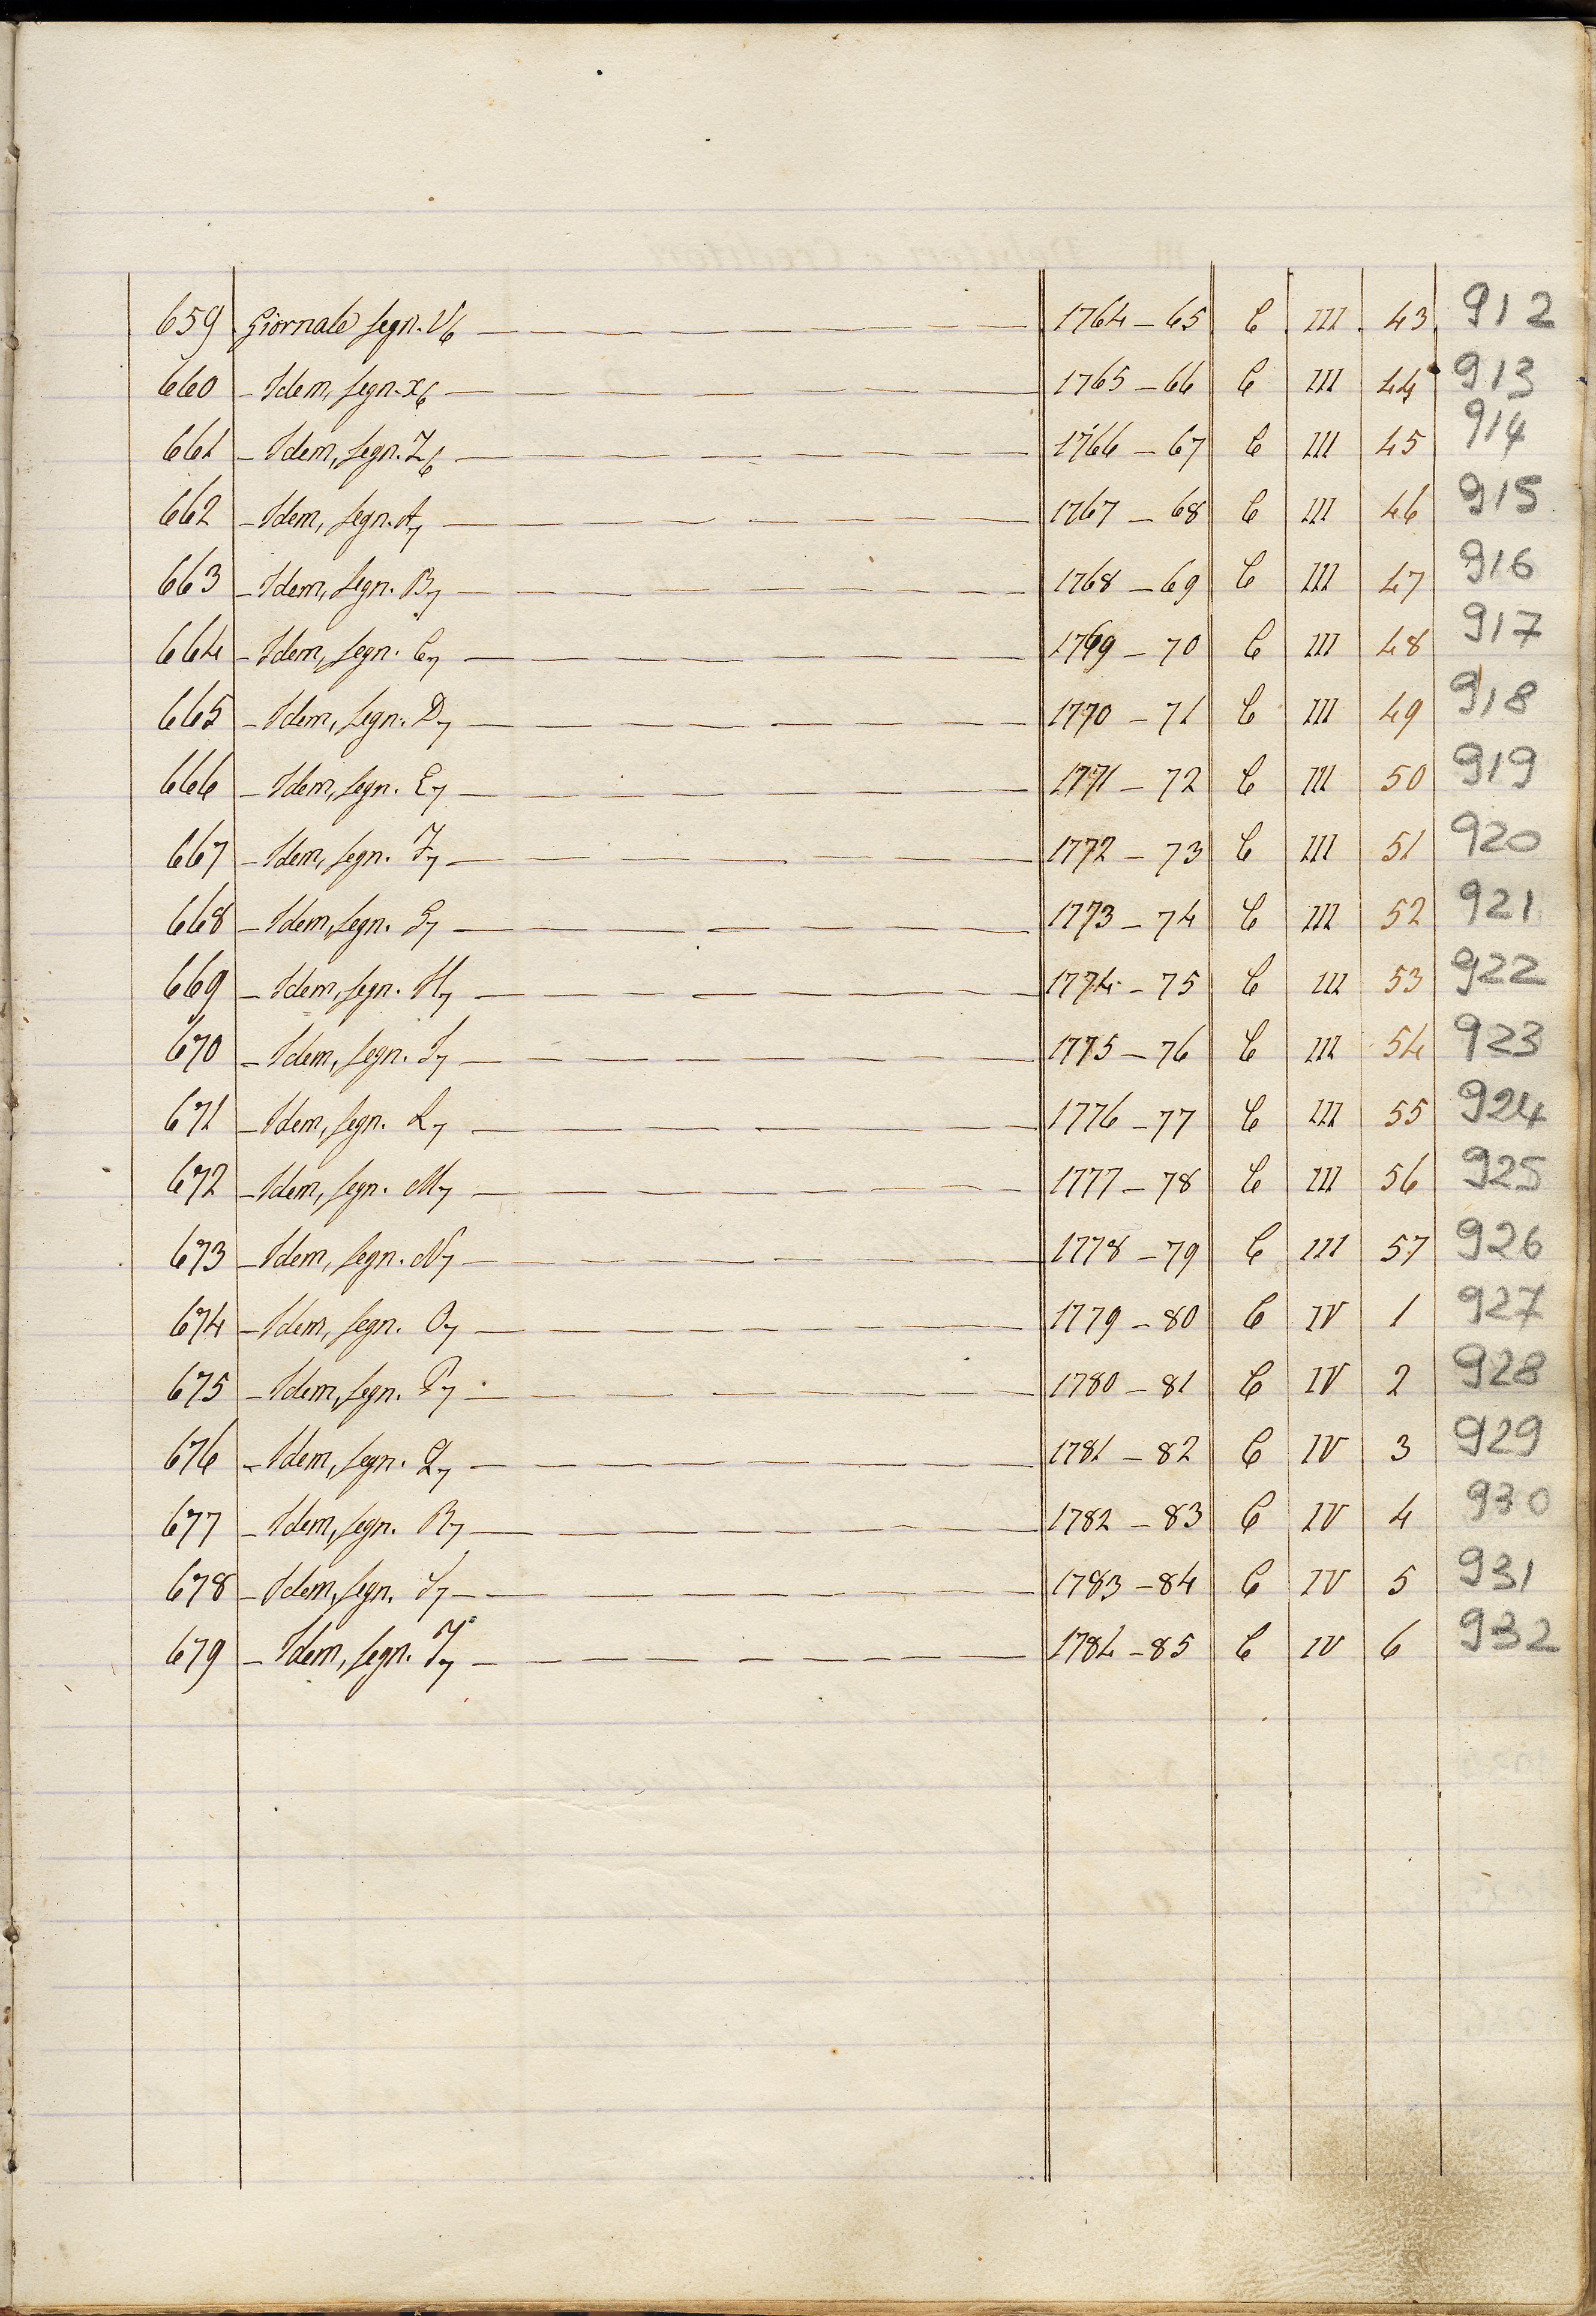 659 Giornale segn. V6 1764 – 65 C III 43 912
660 – Idem, segn. X6 1765 – 66 C III 44 913
661 – Idem, segn. Z6 1766 – 67 C III 45 914
662 – Idem, segn. A7 1767 – 68 C III 46 915
663 – Idem, segn. B7 1768 – 69 C III 47 916
664 – Idem, segn. C7 1769 – 70 C III 48 917
665 – Idem, segn. D7 1770 – 71 C III 49 918
666 – Idem, segn. E7 1771 – 72 C III 50 919
667 – Idem, segn. F7 1772 – 73 C III 51 920
668 – Idem, segn. G7 1773 – 74 C III 52 921
669 – Idem, segn. H7 1774 – 75 C III 53 922
670 – Idem, segn. I7 1775 – 76 C III 54 923
671 – Idem, segn. L7 1776 – 77 C III 55 924
672 – Idem, segn. M7 1777 – 78 C III 56 925
673 – Idem, segn. N7 1778 – 79 C III 57 926
674 – Idem, segn. O7 1779 – 80 C IV 1 927
675 – Idem, segn. P7 1780 – 81 C IV 2 928
676 – Idem, segn. Q7 1781 – 82 C IV 3 929
677 – Idem, segn. R7 1782 – 83 C IV 4 930
678 – Idem, segn. S7 1783 – 84 C IV 5 931
679 – Idem, segn. T7 1784 – 85 C IV 6 932